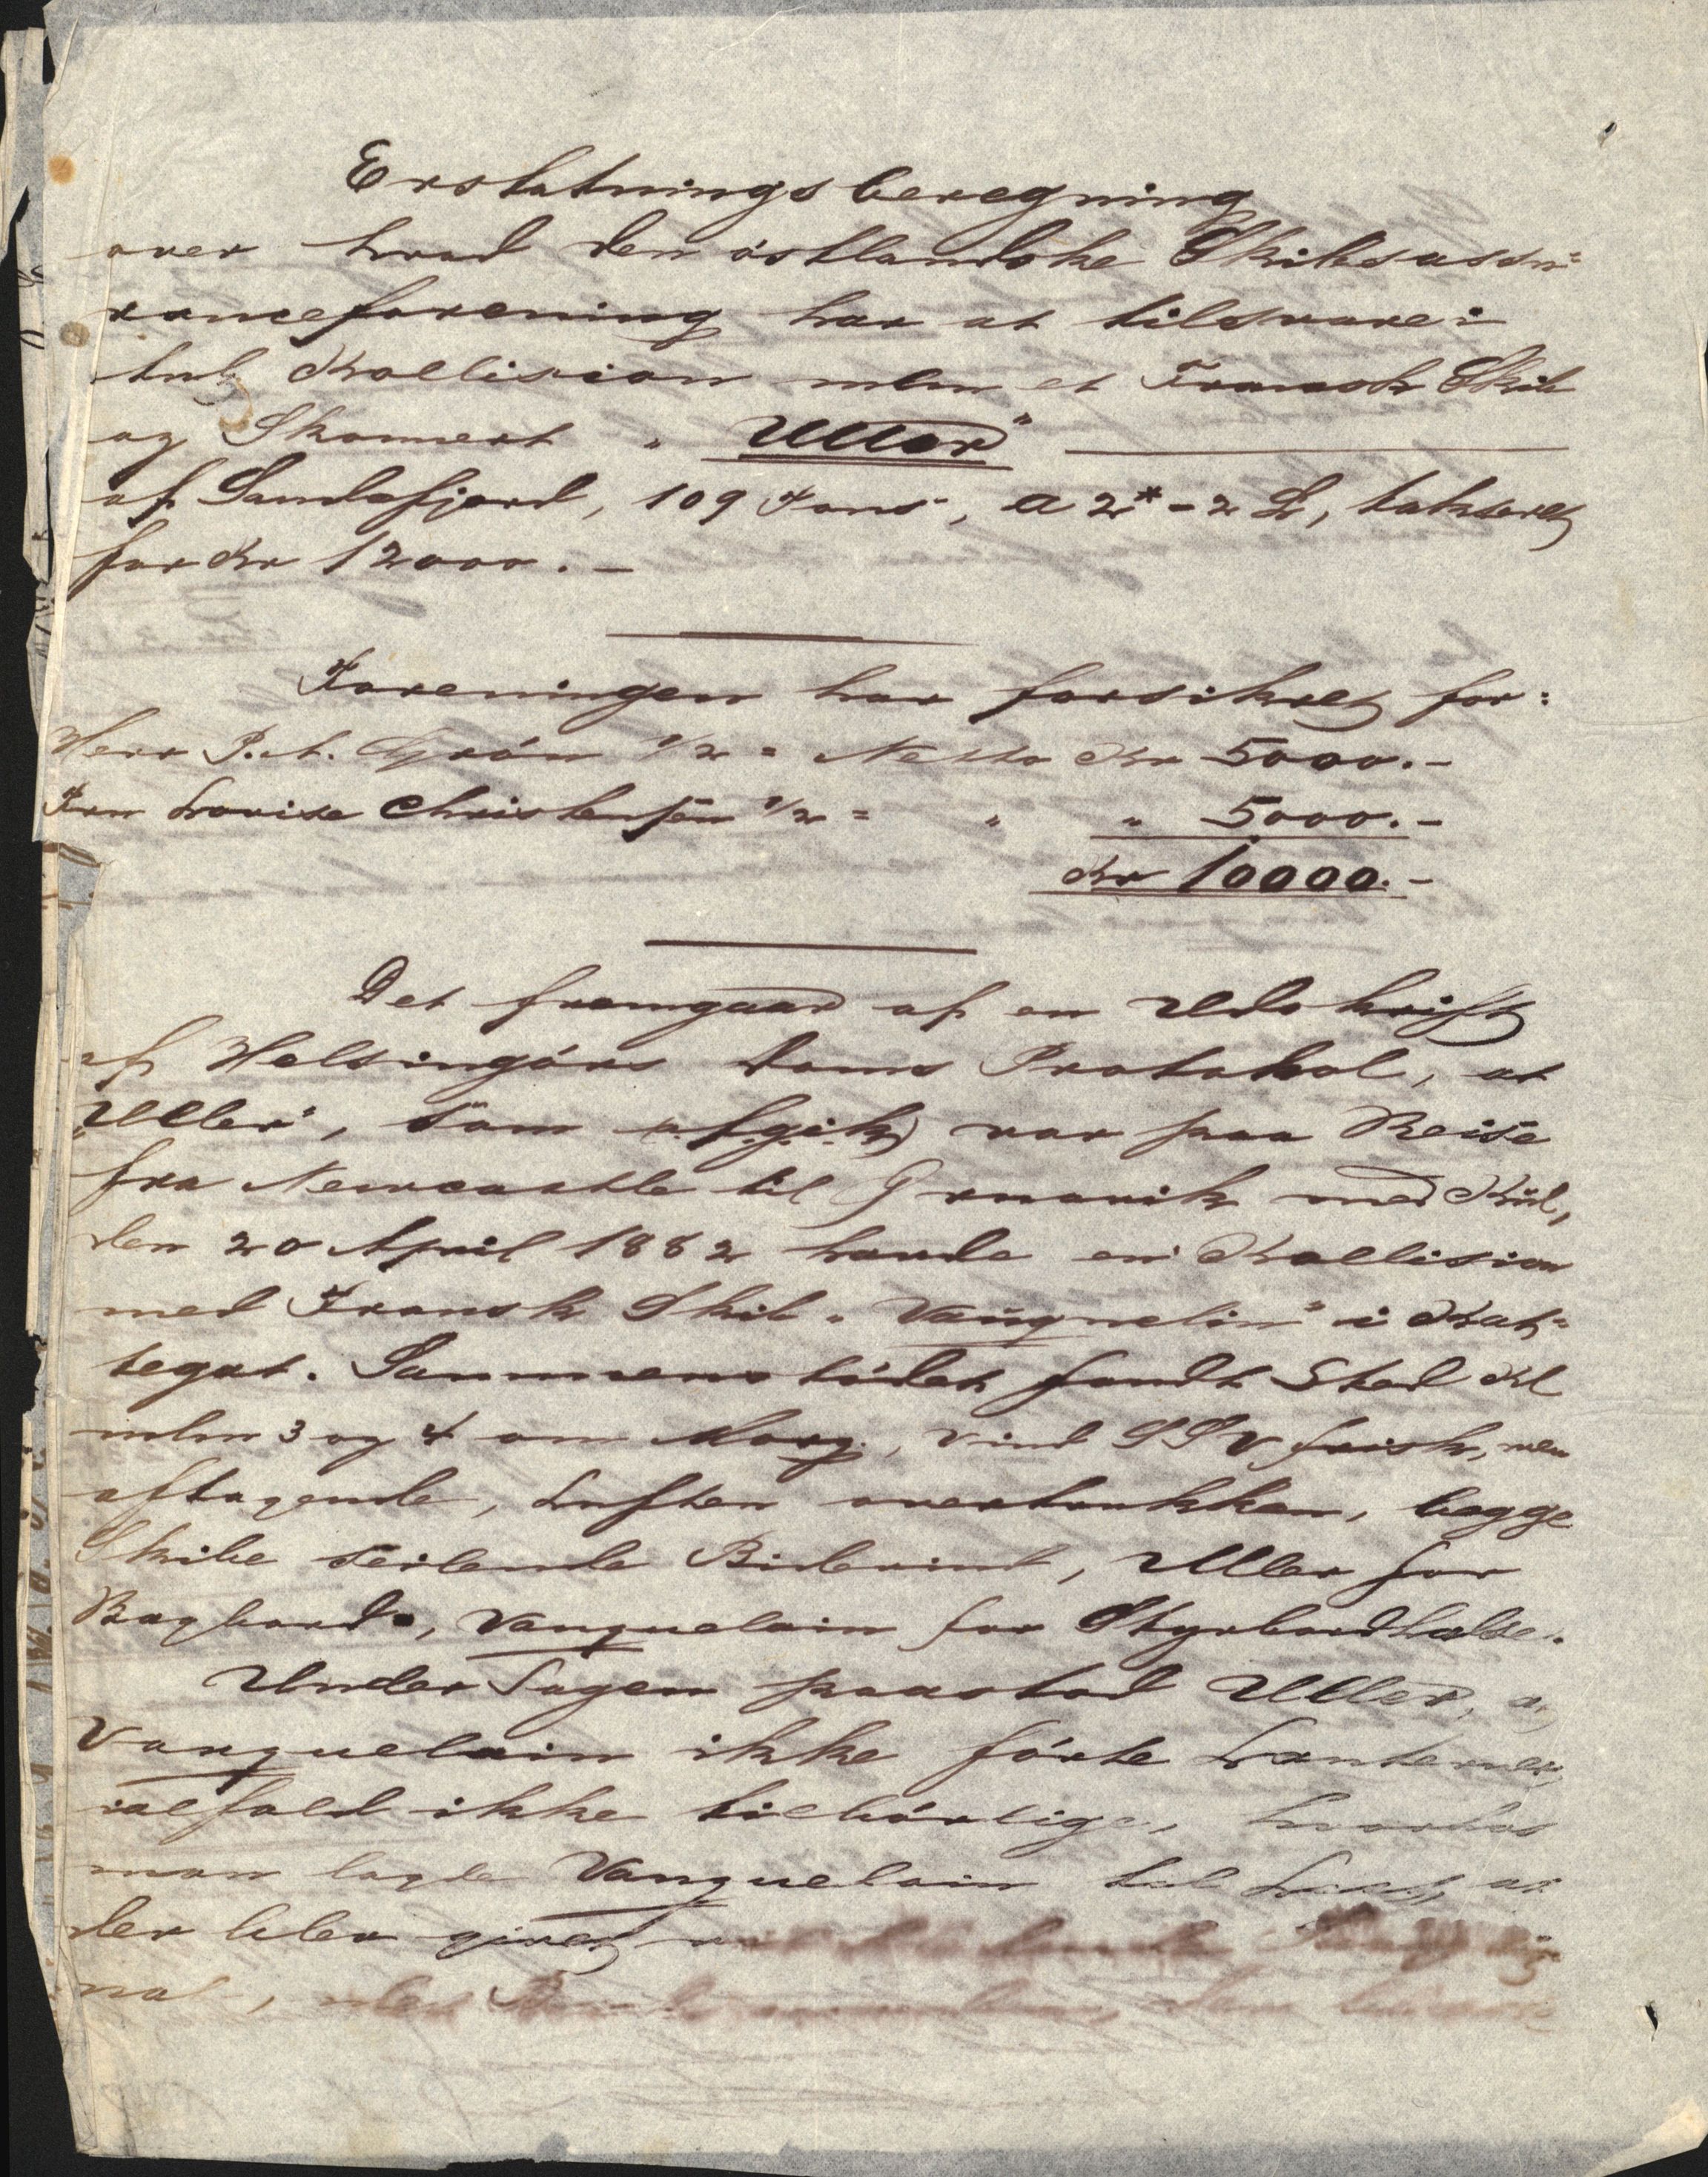 Erstatningsberegning
over hvad den östlandske Skibsassu=
ranceforening har at tilsvare i
Anl Kollision mlm et Fransk Skib
og Skonnert " Uller"
af Sandefjord, 109 Tons, A 2* - 2 L, takseret
for Kr 12000.-
Foreningen har forsikret for:
Herr P. A. Grøn 1/2 = Netto Kr 5000.-
Fru Lovise Christensen 1/2 = " " 5000.-
Kr 10000.-
Det fremgaar af en Udskrift
af Helsingörs Doms Protokol, at
"Uller", som afgik var paa Reise
fra Newcastle til med Kul,
den 20 April 1882 havde en Kollision
med Fransk Skib "Vauquelin" i Kat=
tegat. Sammenstödet fandt Sted Kl
mlm 3 og 4 om Morg., Vind SSV frisk, men
aftagende, Luften overtrukken, begge
Skibe seilende Bidevind, Uller for
Bagbords, Vauquelain for Styrbordhalse.
Under Sagen paastod Uller, at
Vauquelain ikke förte Lanterner,
ialfald ikke tilbörlige, hvorhos
man lagde Vauquelain til Last, at
der blev givet